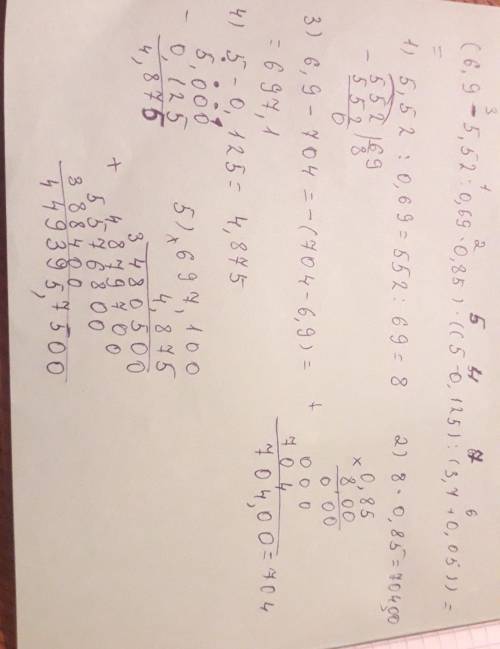 3 1 2 5 4 7 6
(6,9 - 5,52 : 0,69 · 0,85) · ((5-0,125) : (3,7+0,05)) =
=
1) 5,52 : 0,69 = 552 : 69 = 8 2) 8 · 0,85 = 704,00
- 552 | 69
552 8
0
× 0,85
8,00
0 00
+ 000
704
704,00 = 704
3) 6,9 - 704 = -(704 - 6,9) =
= 697,1
4) 5 - 0,125 = 4,875
- 5,000
0,125
4,875
5) × 697,100
4,875
3480500
+ 4879700
5576800
388400
449395,7500